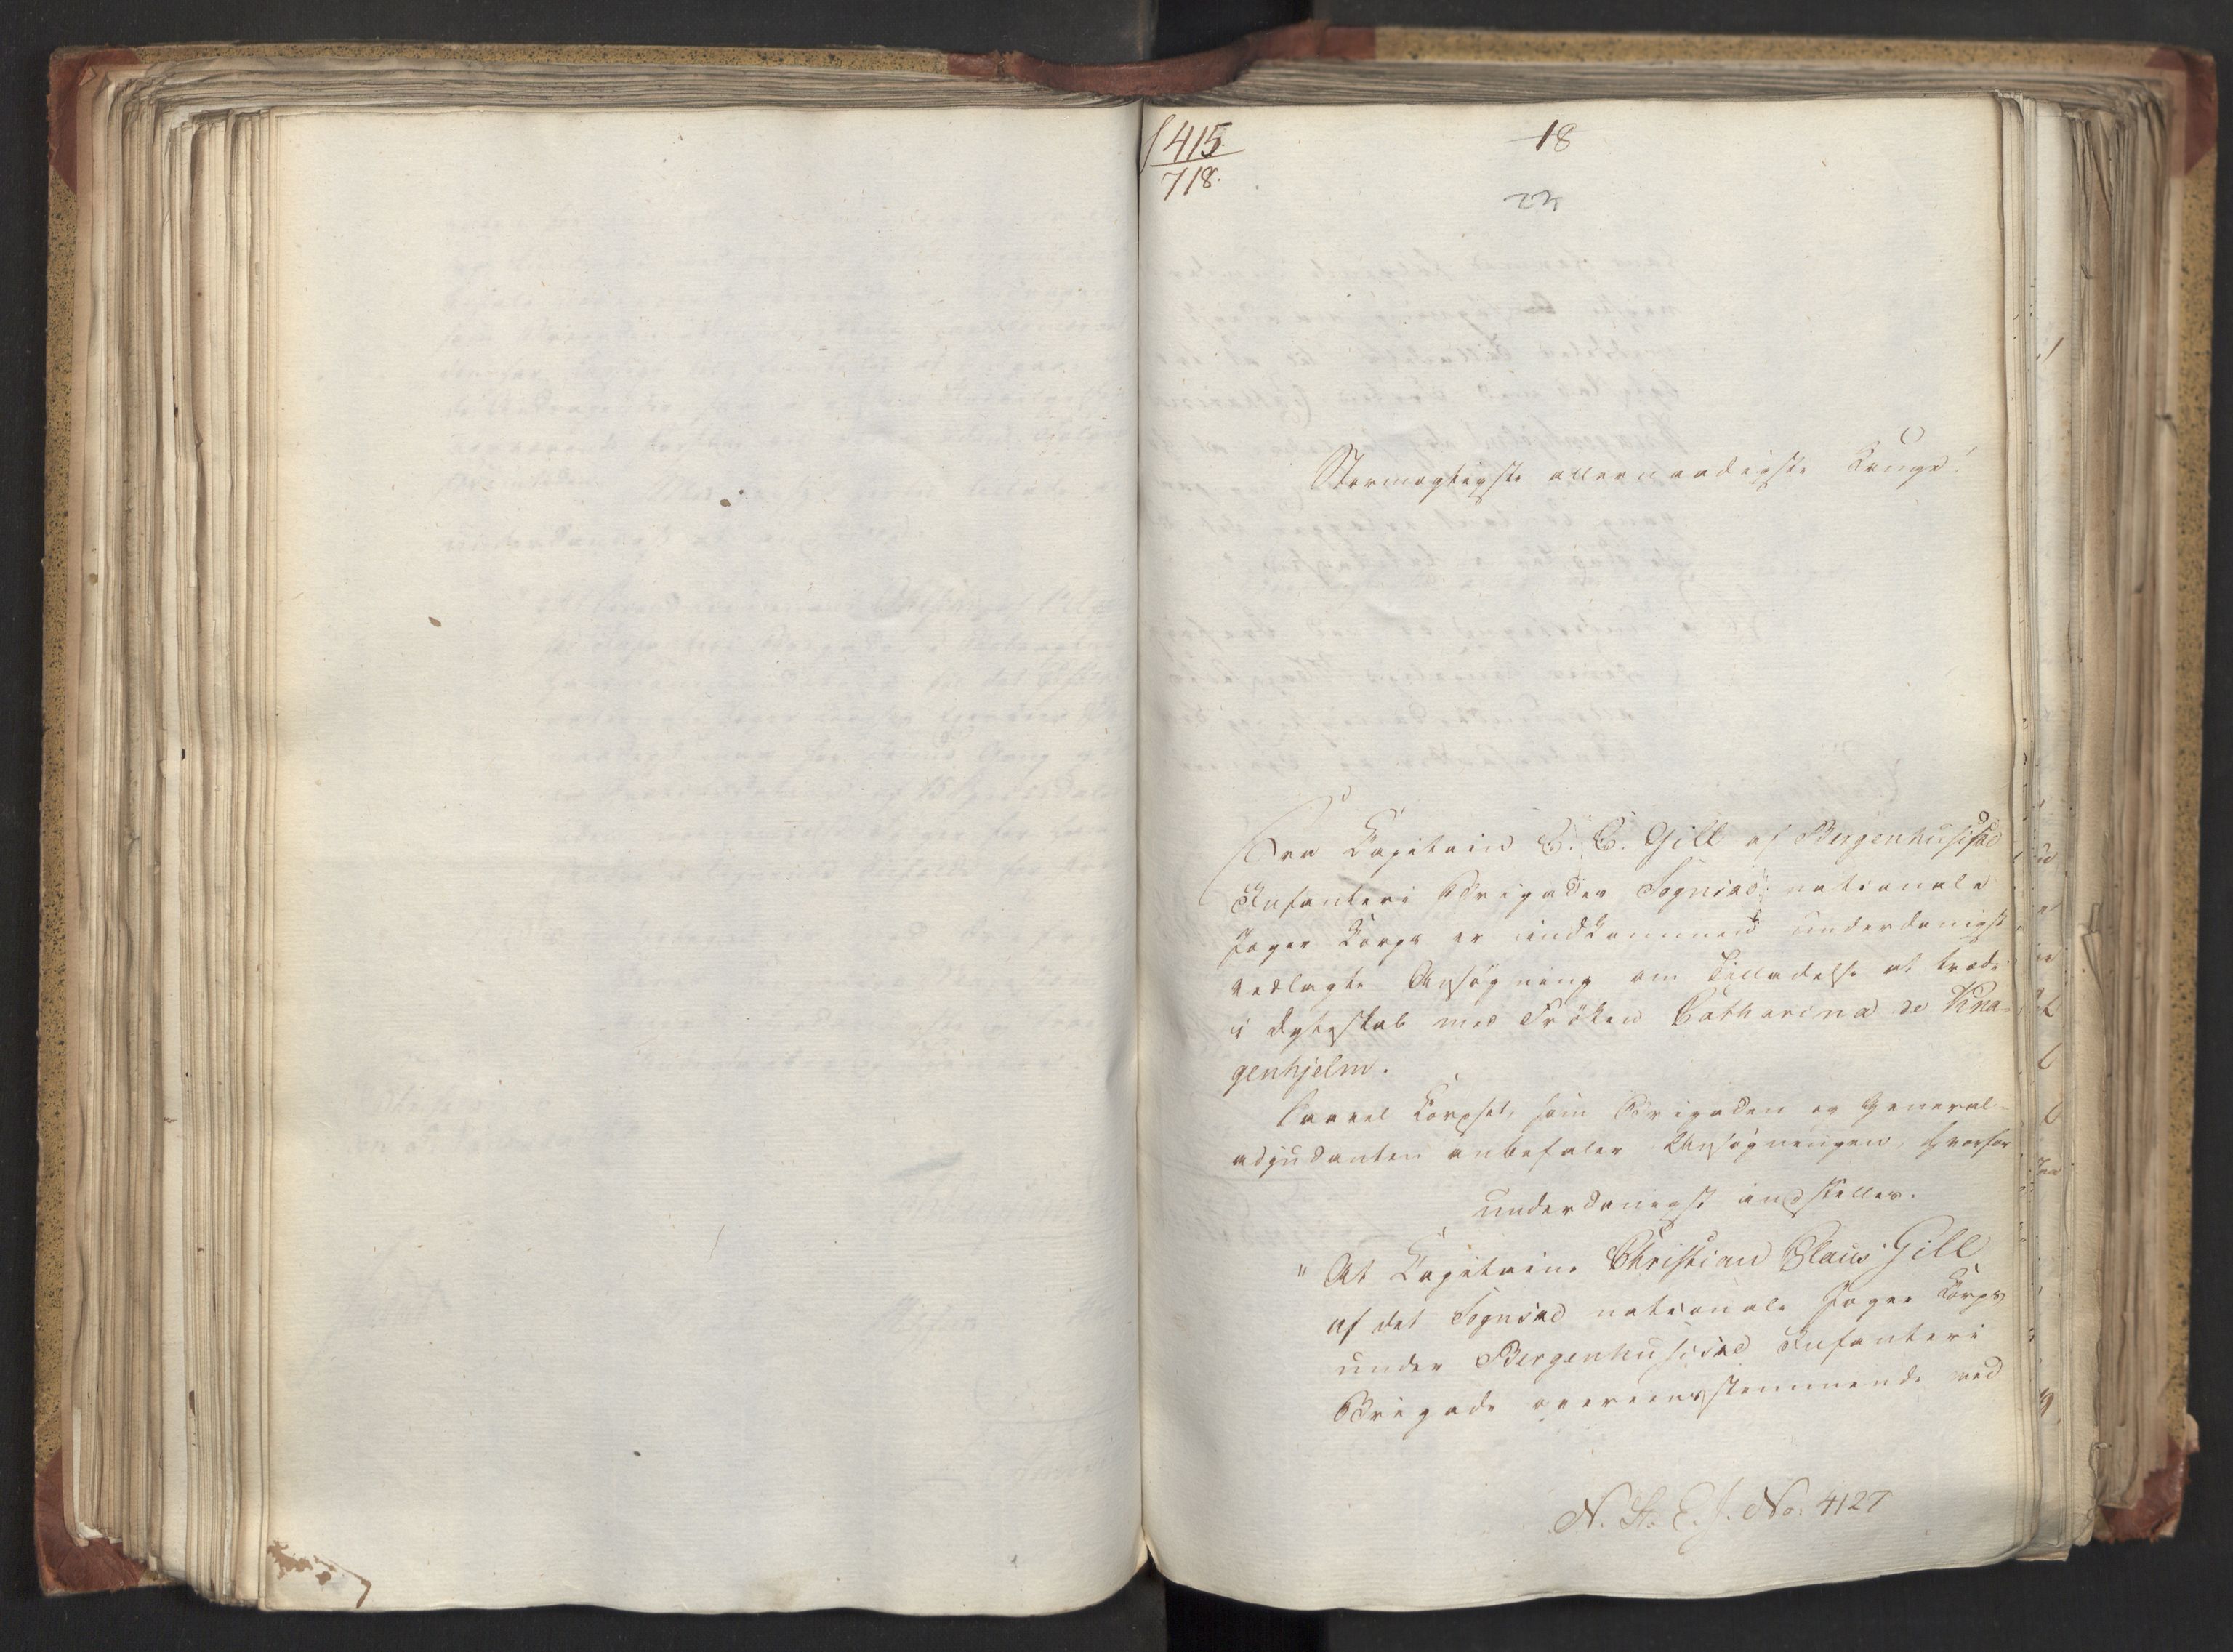 415.
718.
18
23
Stormægtigste allernaadigste Konge!
Fra Kapitain C. C. Gill af Bergenhusiske
Infanteri Brigades Sogniske nationale
Jæger Korps er indkommen underdanigst
vedlagte Ansøgning om Tilladelse at træde
i Ægteskab med Frøken Catharina de Kna-
genhjelm.
Saavel Korpset, som Brigaden og General-
adjudanten anbefaler Ansøgningen, hvorfor
underdanigst indstilles.
" At Kapitaine Christian Claus Gill
af det Sogniske nationale Jæger Korps
under Bergenhusiske Infanteri
Brigade overeensstemmende med
N. St. E. J. No: 4127